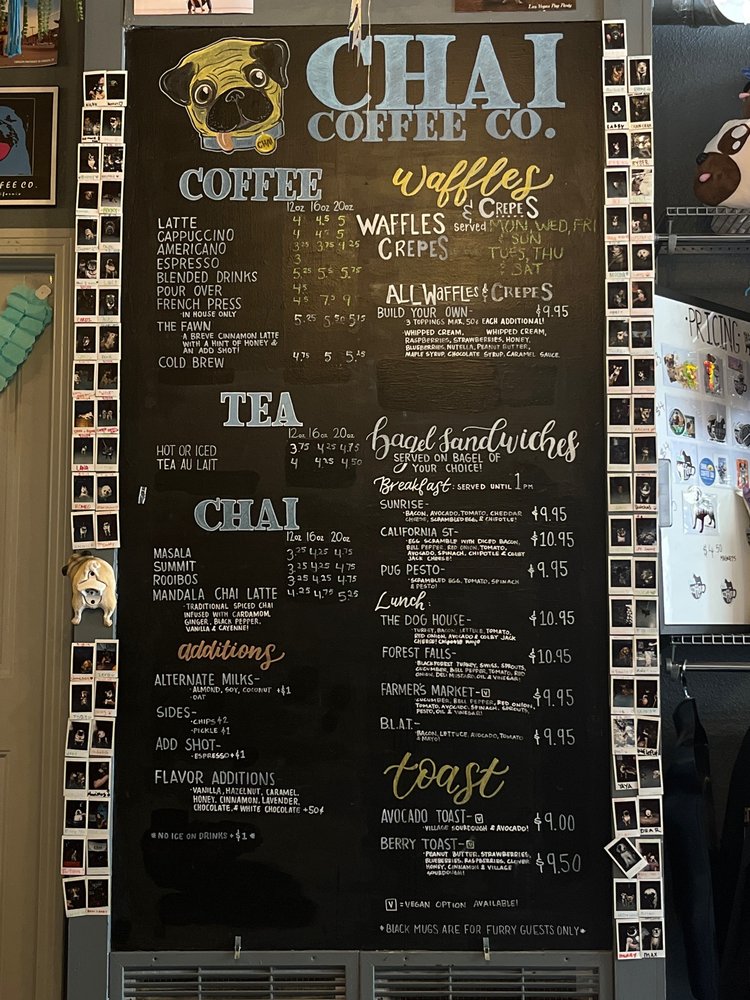 CHAI
COFFEE CO.
COFFEE
12oz 16oz 20oz
LATTE 4 4.5 5
CAPPUCCINO 4 4.5 5
AMERICANO 3.25 3.75 4.25
ESPRESSO 3
BLENDED DRINKS 5.25 5.5 5.75
POUR OVER 4.5
FRENCH PRESS 4.5 7.5 9
IN HOUSE ONLY
THE FAWN 5.25 5.50 5.75
A BREVE CINNAMON LATTE
WITH A HINT OF HONEY &
AN ADD SHOT!
COLD BREW 4.75 5 5.25
TEA
12oz 16oz 20oz
HOT OR ICED 3.75 4.25 4.75
TEA AU LAIT 4 4.25 4.50
CHAI
12oz 16oz 20oz
MASALA 3.25 4.25 4.75
SUMMIT 3.25 4.25 4.75
ROOIBOS 3.25 4.25 4.75
MANDALA CHAI LATTE 4.25 4.75 5.25
-TRADITIONAL SPICED CHAI
INFUSED WITH CARDAMOM,
GINGER, BLACK PEPPER,
VANILLA & CAYENNE!
additions
ALTERNATE MILKS-
-ALMOND, SOY, COCONUT +$1
-OAT
SIDES-
-CHIPS $2
-PICKLE $1
ADD SHOT-
-ESPRESSO +$1
FLAVOR ADDITIONS-
-VANILLA, HAZELNUT, CARAMEL,
HONEY, CINNAMON, LAVENDER,
CHOCOLATE, & WHITE CHOCOLATE +50¢
*NO ICE ON DRINKS +$1*
waffles
& CREPES
WAFFLES served MON, WED, FRI
& SUN
CREPES TUES, THU
& SAT
ALL WAFFLES & CREPES
BUILD YOUR OWN- $9.95
3 TOPPINGS MAX, 50¢ EACH ADDITIONAL!
WHIPPED CREAM, WHIPPED CREAM,
RASPBERRIES, STRAWBERRIES, HONEY,
BLUEBERRIES, NUTELLA, PEANUT BUTTER,
MAPLE SYRUP, CHOCOLATE SYRUP, CARAMEL SAUCE
bagel sandwiches
SERVED ON BAGEL OF
YOUR CHOICE!
Breakfast: SERVED UNTIL 1PM
SUNRISE- $9.95
-BACON, AVOCADO, TOMATO, CHEDDAR
CHEESE, SCRAMBLED EGG, & CHIPOTLE!
CALIFORNIA ST- $10.95
-EGG SCRAMBLE WITH DICED BACON,
BELL PEPPER, RED ONION, TOMATO,
AVOCADO, SPINACH, CHIPOTLE & COLBY
JACK CHEESE!
PUG PESTO- $9.95
-SCRAMBLED EGG, TOMATO, SPINACH
& PESTO!
Lunch:
THE DOG HOUSE- $10.95
-TURKEY, BACON, LETTUCE, TOMATO,
RED ONION, AVOCADO & COLBY JACK
CHEESE! CHIPOTLE MAYO
FOREST FALLS- $10.95
-BLACKFOREST TURKEY, SWISS, SPROUTS,
CUCUMBER, BELL PEPPER, TOMATO, RED
ONION, DELI MUSTARD, OIL & VINEGAR!
FARMER'S MARKET- V $9.95
-CUCUMBER, BELL PEPPER, RED ONION,
TOMATO, AVOCADO, SPINACH, SPROUTS,
PESTO, OIL & VINEGAR!
B.L.A.T.- $9.95
-BACON, LETTUCE, AVOCADO, TOMATO
& MAYO!
toast
AVOCADO TOAST- V $9.00
-VILLAGE SOURDOUGH & AVOCADO!
BERRY TOAST- V $9.50
-PEANUT BUTTER, STRAWBERRIES,
BLUEBERRIES, RASPBERRIES, CLOVER
HONEY, CINNAMON & VILLAGE
SOURDOUGH!
V = VEGAN OPTION AVAILABLE!
*BLACK MUGS ARE FOR FURRY GUESTS ONLY*
FEE CO.
PRICING
$4.50
MAGNETS
YAYA
MAX